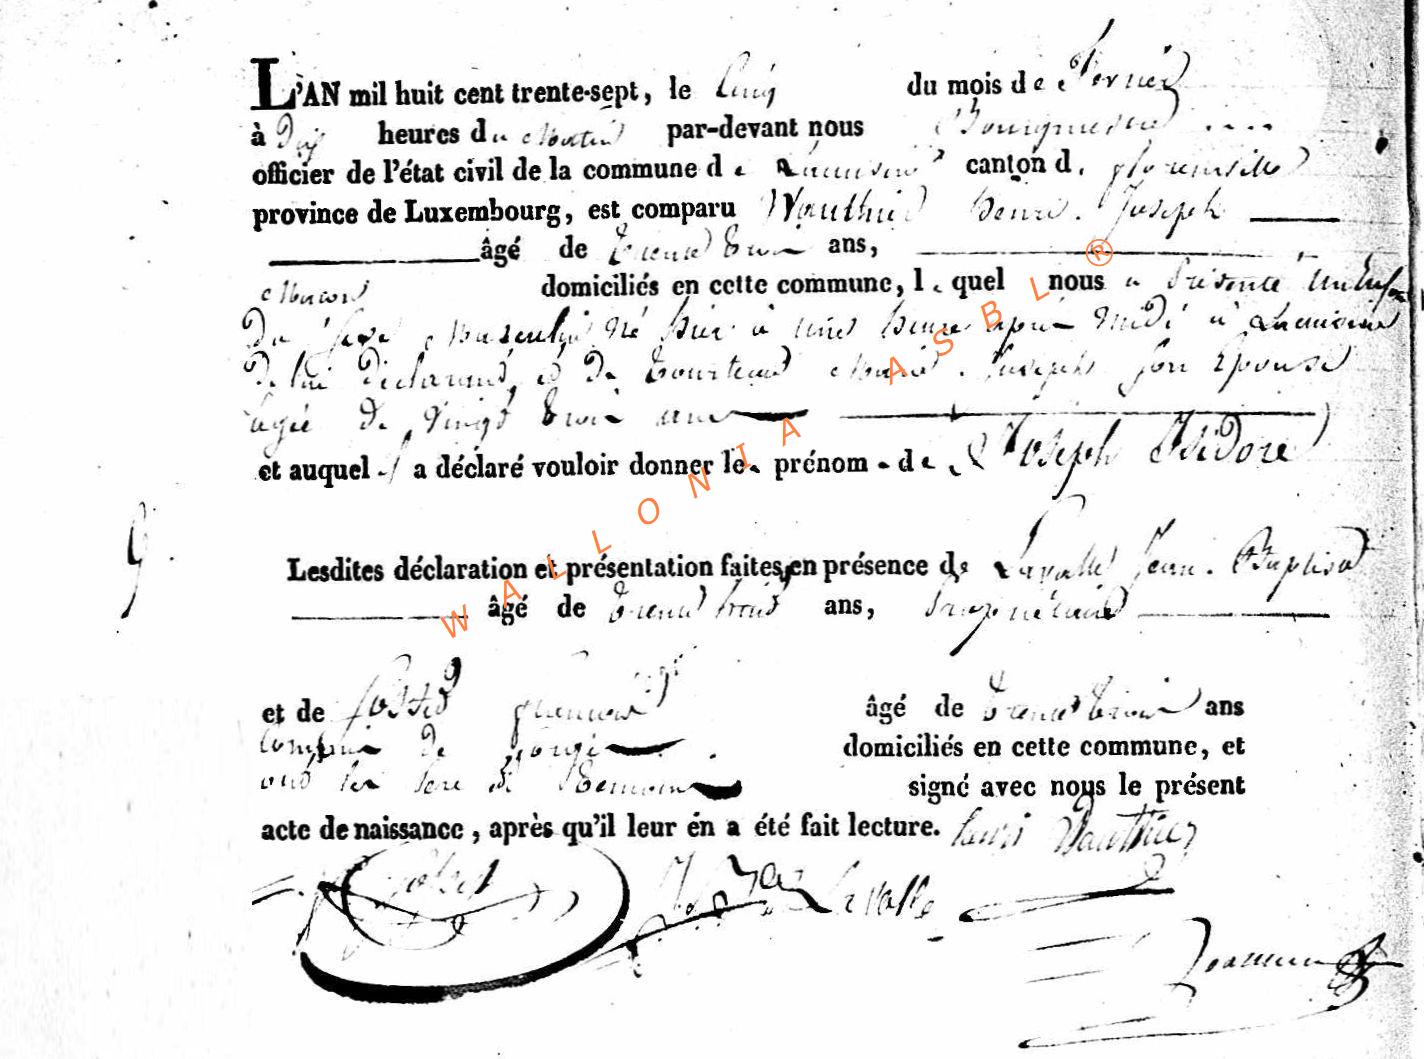 L'AN mil huit cent trente-sept, le Cinq du mois de fevrier
à Dix heures du Matin par-devant nous Bourgmestre
officier de l'état civil de la commune de canton d.
province de Luxembourg, est comparu Wauthier henri Joseph
âgé de trente trois ans,
domiciliés en cette commune, lequel nous a présenté un Enfant
Du sexe Masculin Né hier à une heure après midi à
De lui déclarant, et De Marie Joseph son Epouse
agée De Vingt trois ans
et auquel il a déclaré vouloir donner les prénom de Joseph Isidore
9.
Lesdites déclaration et présentation faites en présence de Lavalle Jean Baptiste
âgé de trente trois ans, propriétaire
et de âgé de trente trois ans
De forge domiciliés en cette commune, et
ont les père et temoins signé avec nous le présent
acte de naissance, après qu'il leur en a été fait lecture. henri Wauthier
Lavalle
WALLONIA ASBL ®